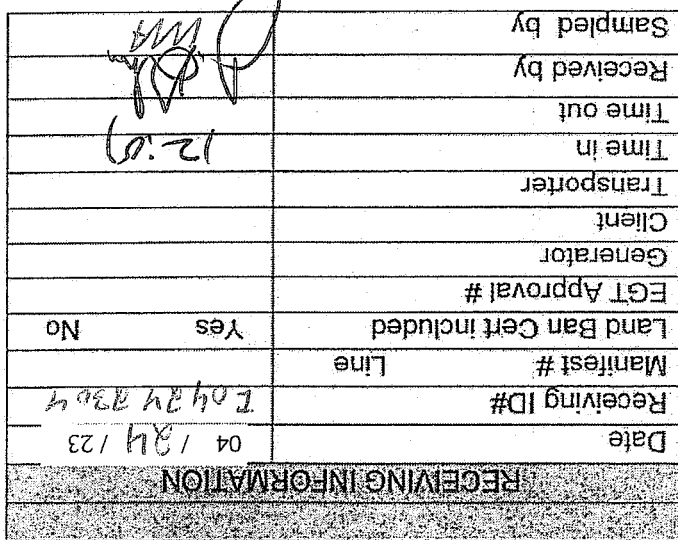 RECEIVING INFORMATION
Date 04 / 24 / 23
Receiving ID# I04242304
Manifest # Line
Land Ban Cert included Yes No
EGT Approval #
Generator
Client
Transporter
Time in
Time out
Received by
Sampled by